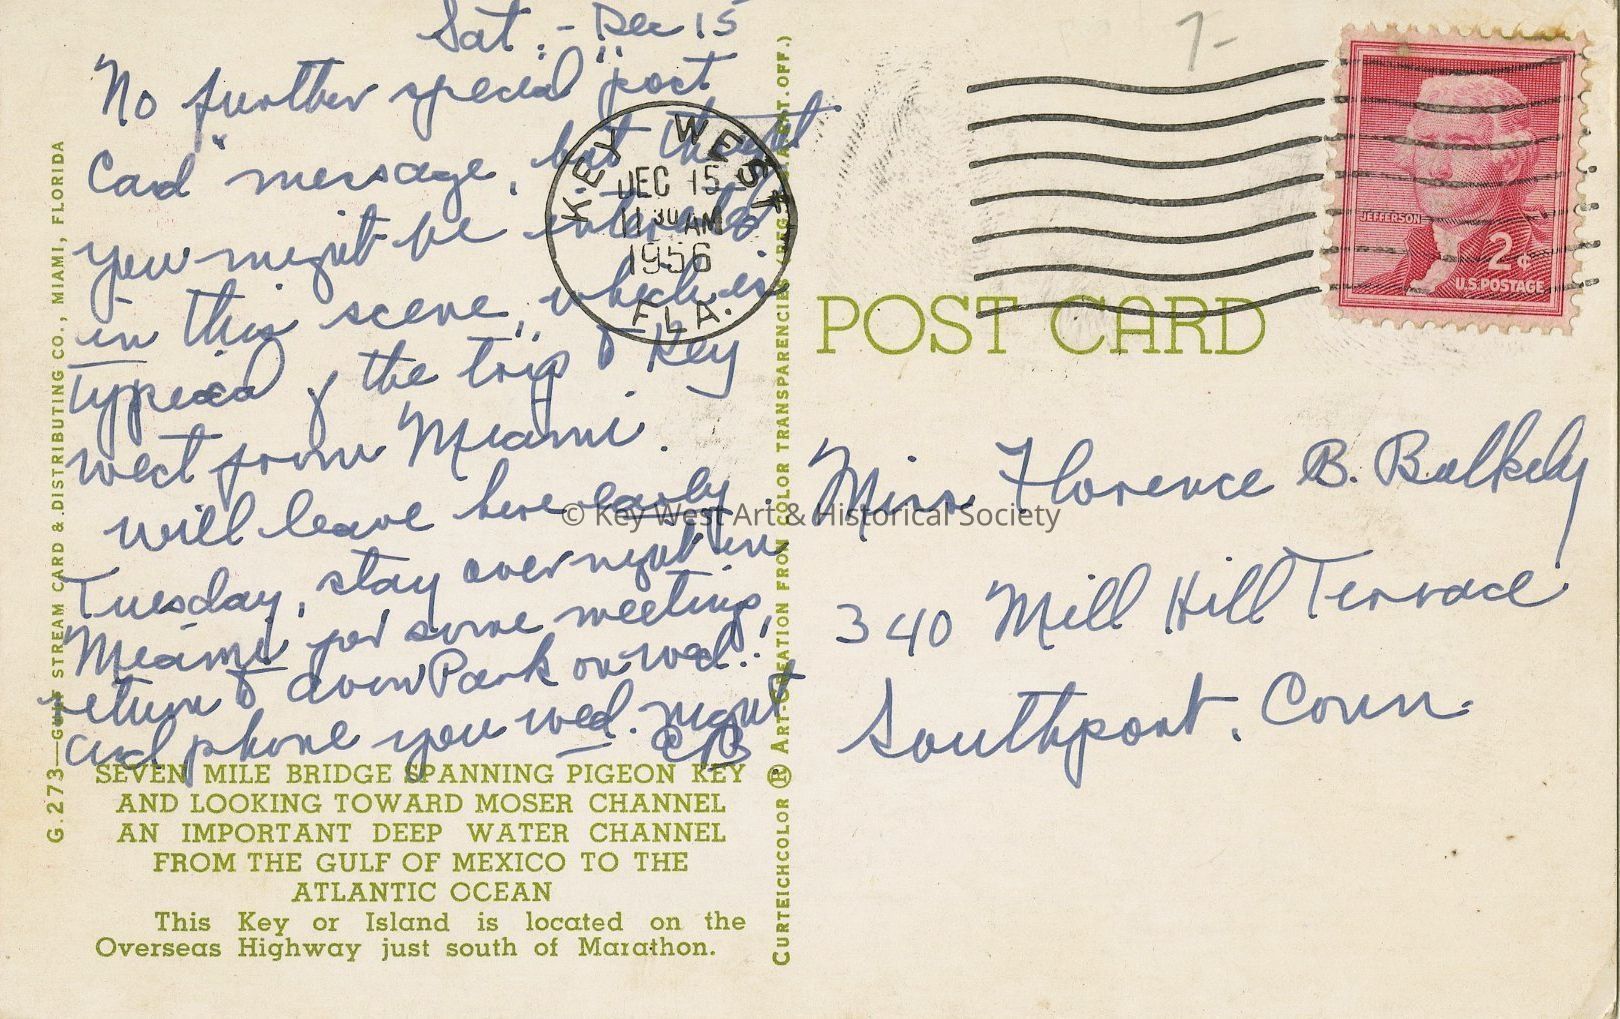 Sat. - Dec 15
No further special "post
Card" message, but thought
you might be interested
in this scene, which is
"typical" of the trip to Key
West from Miami.
Will leave here early
Tuesday, stay overnight in
Miami for some meeting,
return to Avon Park on Wed.!
and phone you Wed. night
CB
SEVEN MILE BRIDGE SPANNING PIGEON KEY
AND LOOKING TOWARD MOSER CHANNEL
AN IMPORTANT DEEP WATER CHANNEL
FROM THE GULF OF MEXICO TO THE
ATLANTIC OCEAN
This Key or Island is located on the
Overseas Highway just south of Marathon.
G.273—GULF STREAM CARD & DISTRIBUTING CO., MIAMI, FLORIDA
CURTEICHCOLOR ® ART-CREATION FROM COLOR TRANSPARENCIES (REG. U.S.A. PAT. OFF.)
KEY WEST
DEC 15
11 30 AM
1956
FLA.
7-
JEFFERSON
2¢
U.S. POSTAGE
POST CARD
Miss Florence B. Bulkely
340 Mill Hill Terrace
Southport, Conn.
© Key West Art & Historical Society